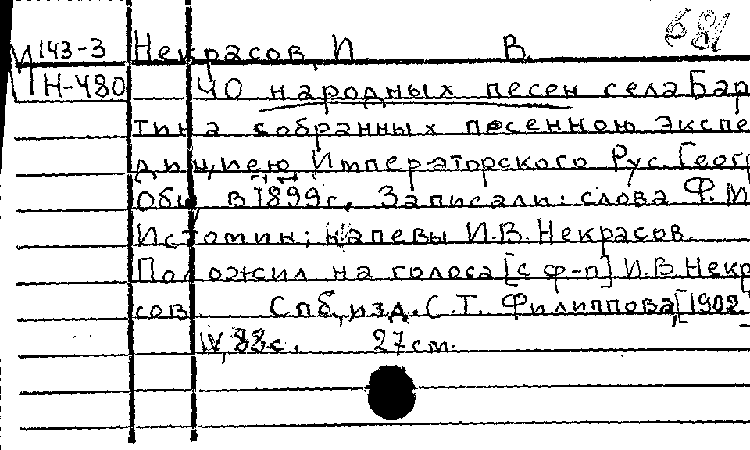 681
М 143-3 Некрасов, И В.
Н-480 40 народных песен села Бар
тина собранных песенною экспе
дициею Императорского Рус. Геогр
Общ в 1899 г. Записали: слова Ф. М
Истомин; напевы И.В. Некрасов.
Положил на голоса [с ф-п] И.В. Некр
сов. Спб, изд. С.Т. Филиппова, [1902.
IV, 88 с. 27 см.